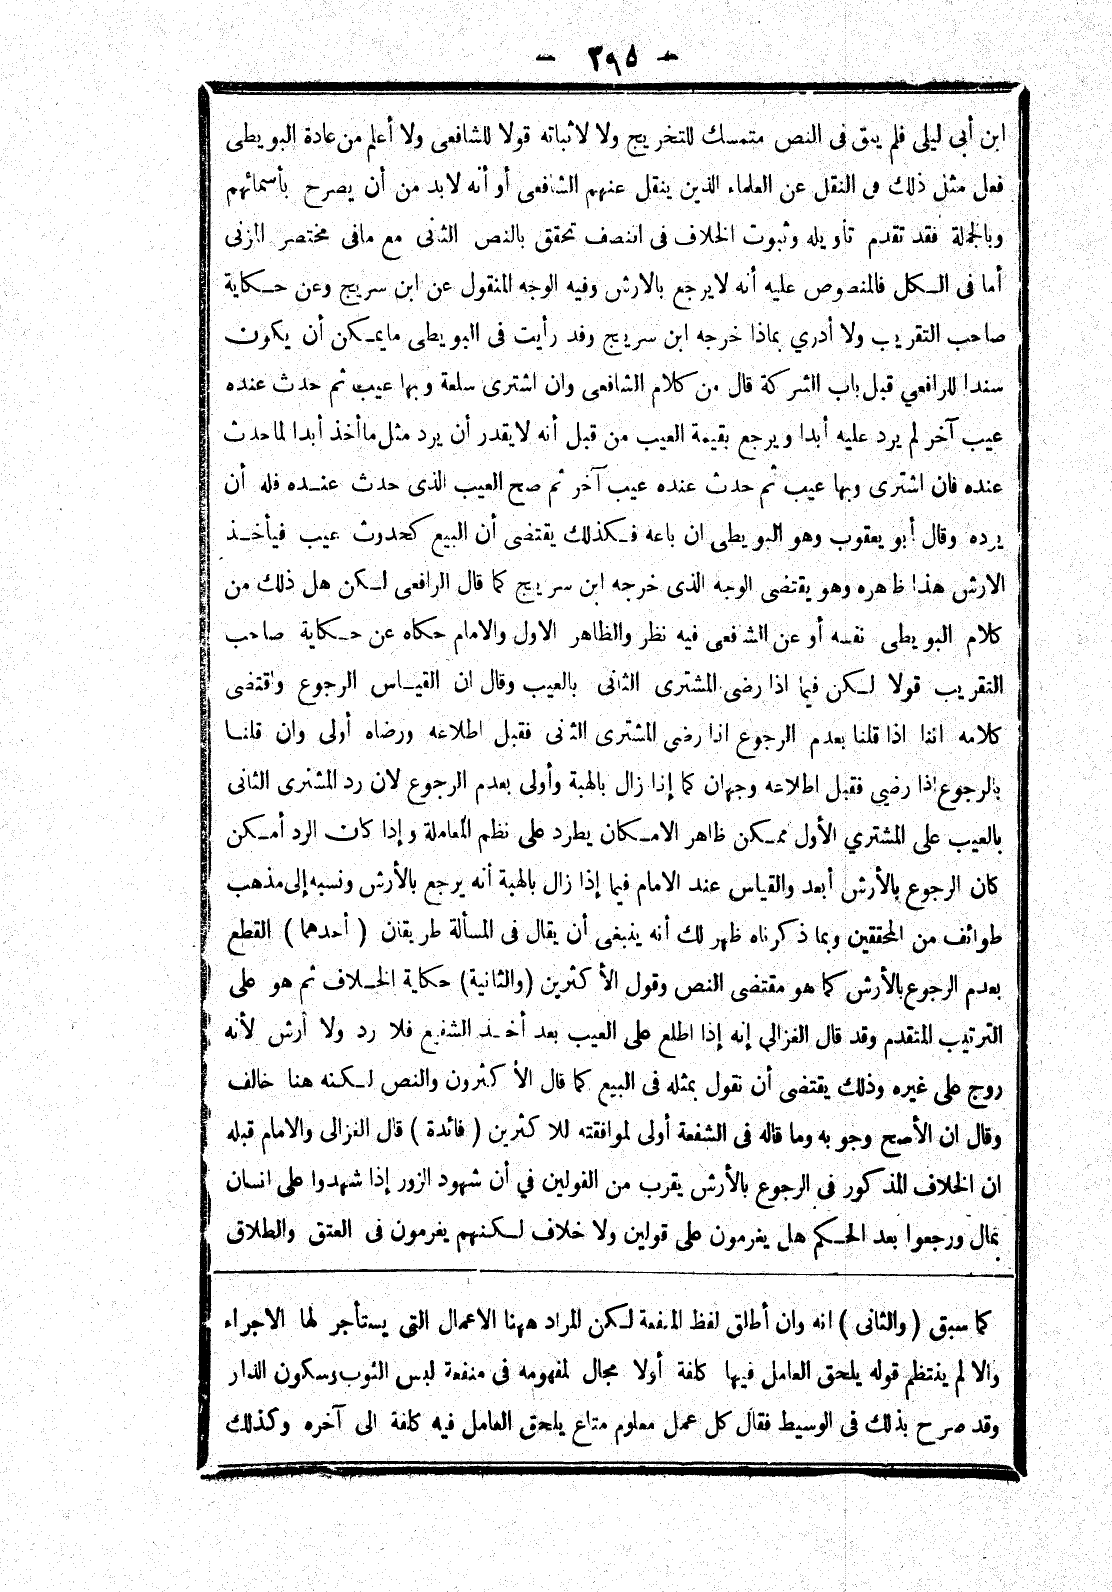 - ٣٩٥ -
ابن أبى ليلى فلم يبق فى النص متمسك للتخريج ولا لاثباته قولا للشافعى ولا أعلم من عادة البويطى
فعل مثل ذلك فى النقل عن العلماء الذين ينقل عنهم الشافعى أو أنه لابد من أن يصرح بأسمائهم
وبالجملة فقد تقدم تأويله وثبوت الخلاف فى النصف تحقق بالنص الثانى مع مافى مختصر المزنى
أما فى الكل فالمنصوص عليه أنه لايرجع بالارش وفيه الوجه المنقول عن ابن سريج وعن حكاية
صاحب التقريب ولا أدري بماذا خرجه ابن سريج وقد رأيت فى البويطى مايمكن أن يكون
سندا للرافعي قبل باب الشركة قال من كلام الشافعى وان اشترى سلعة وبها عيب ثم حدث عنده
عيب آخر لم يرد عليه أبدا ويرجع بقيمة العيب من قبل أنه لايقدر أن يرد مثل ماأخذ أبدا لماحدث
عنده فان اشترى وبها عيب ثم حدث عنده عيب آخر ثم صح العيب الذى حدث عنده فله أن
يرده وقال أبو يعقوب وهو البويطى ان باعه فكذلك يقتضى أن البيع كحدوث عيب فيأخذ
الارش هذا ظاهره وهو يقتضى الوجه الذى خرجه ابن سريج كما قال الرافعى لكن هل ذلك من
كلام البويطى نفسه أو عن الشافعى فيه نظر والظاهر الاول والامام حكاه عن حكاية صاحب
التقريب قولا لكن فيما اذا رضى المشترى الثانى بالعيب وقال ان القياس الرجوع واقتضى
كلامه اننا اذا قلنا بعدم الرجوع اذا رضى المشترى الثانى فقبل اطلاعه ورضاه أولى وان قلنا
بالرجوع اذا رضي فقبل اطلاعه وجهان كما إذا زال بالهبة وأولى بعدم الرجوع لان رد المشترى الثانى
بالعيب على المشتري الأول ممكن ظاهر الامكان يطرد على نظم المعاملة وإذا كان الرد أمكن
كان الرجوع بالأرش أبعد والقياس عند الامام فيما إذا زال بالهبة أنه يرجع بالأرش ونسبه إلى مذهب
طوائف من المحققين وبما ذكرناه ظهر لك أنه ينبغى أن يقال فى المسألة طريقان ( أحدهما ) القطع
بعدم الرجوع بالأرش كما هو مقتضى النص وقول الأكثرين (والثانية) حكاية الخلاف ثم هو على
الترتيب المتقدم وقد قال الغزالي إنه إذا اطلع على العيب بعد أخذ الشفيع فلا رد ولا أرش لأنه
روج على غيره وذلك يقتضى أن نقول بمثله فى البيع كما قال الأكثرون والنص لكنه هنا خالف
وقال ان الأصح وجوبه وما قاله فى الشفعة أولى لموافقته للاكثرين ( فائدة ) قال الغزالى والامام قبله
ان الخلاف المذكور فى الرجوع بالأرش يقرب من القولين في أن شهود الزور إذا شهدوا على انسان
بمال ورجعوا بعد الحكم هل يغرمون على قولين ولا خلاف لكنهم يغرمون فى العتق والطلاق
كما سبق ( والثانى ) انه وان أطلق لفظ المنفعة لكن المراد ههنا الاعمال التى يستأجر لها الاجراء
والا لم ينتظم قوله يلحق العامل فيها كلفة أولا مجال لمفهومه فى منفعة لبس الثوب وسكون الدار
وقد صرح بذلك فى الوسيط فقال كل عمل معلوم متاع يلحق العامل فيه كلفة الى آخره وكذلك